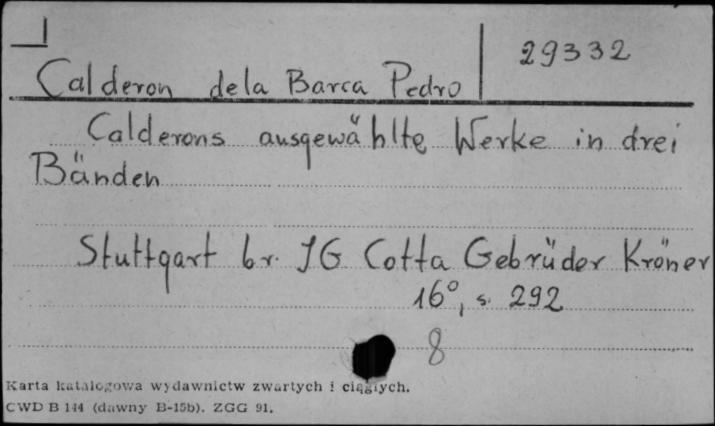 29332
Calderon dela Barca Pedro
Calderons ausgewählte Werke in drei
Bänden
Stuttgart br. JG Cotta Gebrüder Kröner
16°, s. 292
8
Karta katalogowa wydawnictw zwartych i ciągłych.
CWD B 144 (dawny B-15b). ZGG 91.